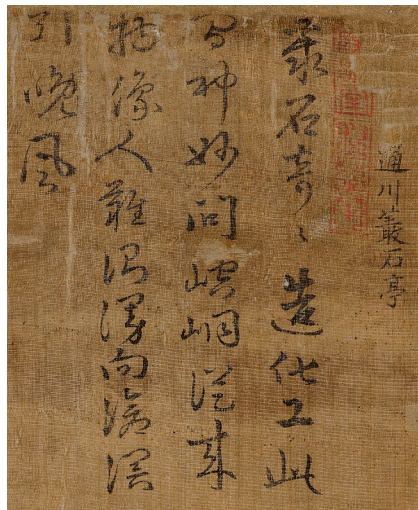 通川叢石亭
叢石奇〻造化工此
間神妙問崆峒從來
物像人難得漫向滄溟
引晚風